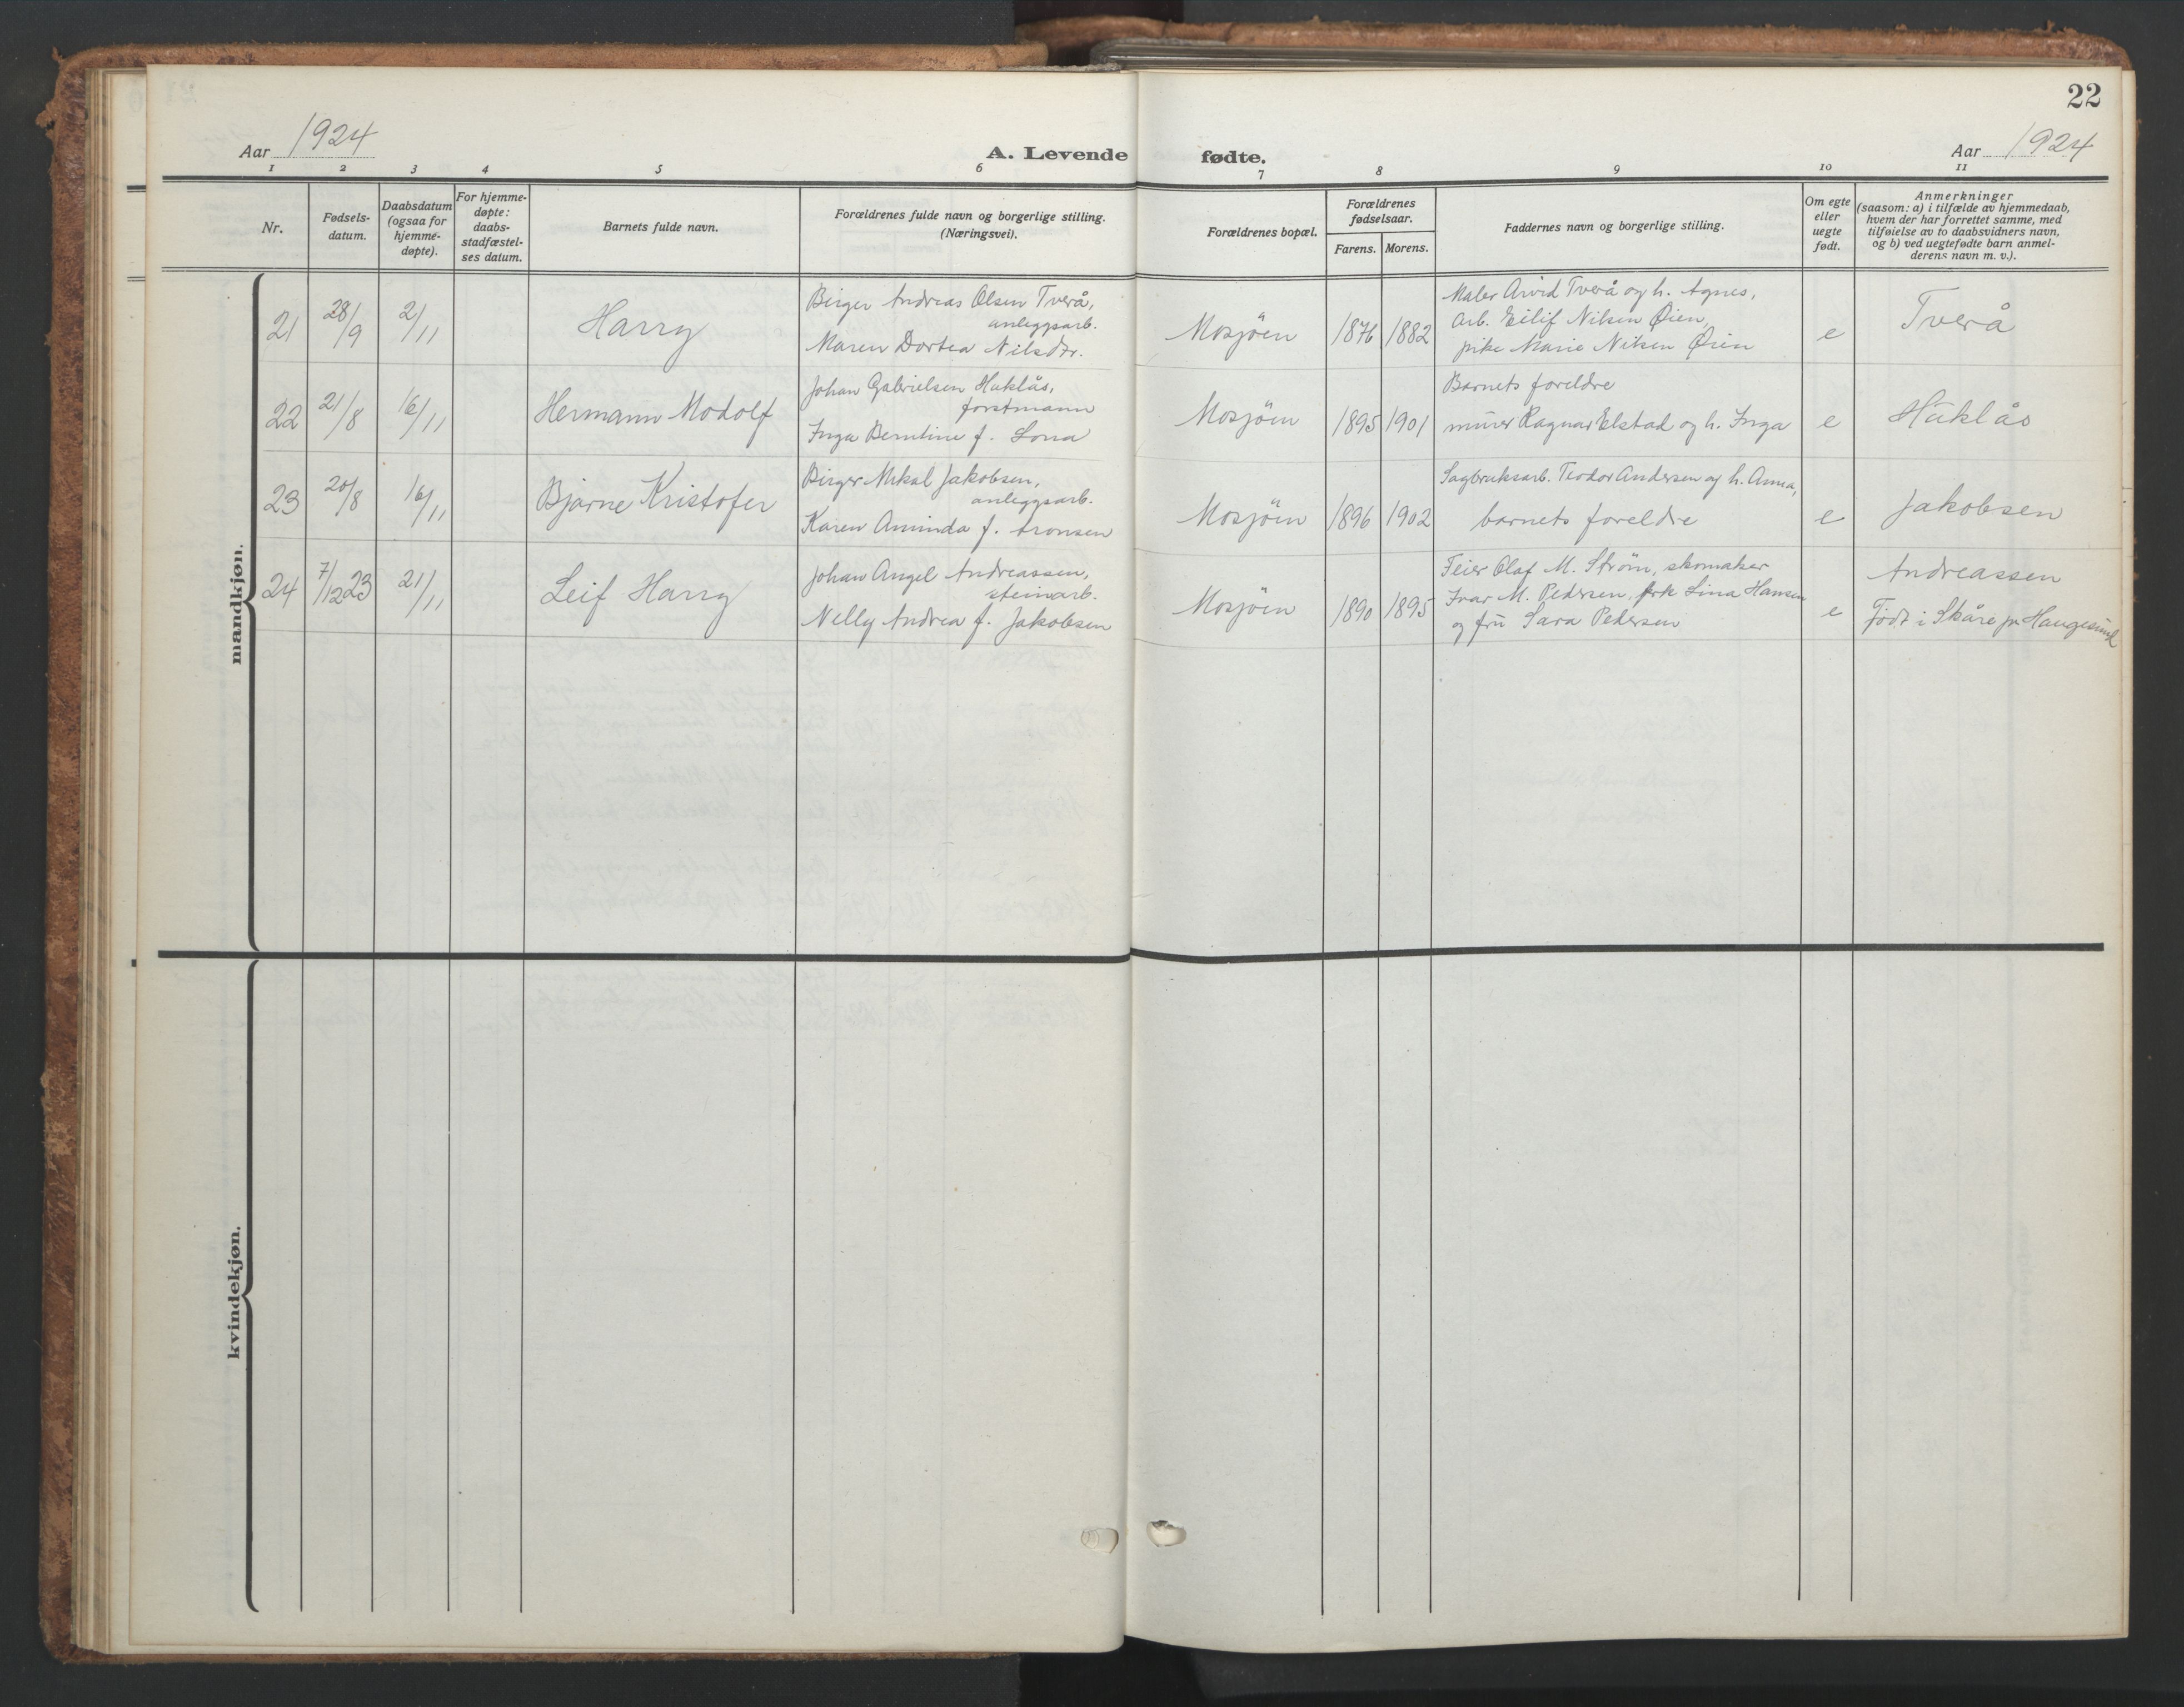 22
Aar 1924
A. Levende fødte.
Aar 1924
1 2 3 4 5 6 7 8 9 10 11
Nr.
Fødsels-
datum.
Daabsdatum
(ogsaa for
hjemme-
døpte).
For hjemme-
døpte:
daabs-
stadfæstel-
ses datum.
Barnets fulde navn.
Forældrenes fulde navn og borgerlige stilling.
(Næringsvei).
Forældrenes bopæl.
Forældrenes
fødselsaar.
Farens. Morens.
Faddernes navn og borgerlige stilling.
Om egte
eller
uegte
født.
Anmerkninger
(saasom: a) i tilfælde av hjemmedaab,
hvem der har forrettet samme, med
tilføielse av to daabsvidners navn,
og b) ved uegtefødte barn anmel-
derens navn m. v.).
mandkjøn.
21
28/9
2/11
Harry
Birger Andreas Olsen Tverå,
anleggsarb.
Maren Dortea Nilsdtr.
Mosjöen
1876 1882
Maler Arvid Tverå og h. Agnes,
arb. Eilif Nilsen Øien,
pike Marie Nilsen Øien
e
Tverå
22
21/8
16/11
Hermann Modolf
Johan Gabrielsen Huklås,
forstmann
Inga Berntine f. Lona
Mosjöen
1895 1901
Barnets foreldre
murer Ragnar Elstad og h. Inga
e
Huklås
23
20/8
16/11
Bjarne Kristofer
Birger Mikal Jakobsen,
anleggsarb.
Karen Aminda f. Aronsen
Mosjöen
1896 1902
Sagbruksarb. Teodor Andersen og h. Anna,
barnets foreldre
e
Jakobsen
24
7/12 23
21/11
Leif Harry
Johan Angel Andreassen,
steinarb.
Nelly Andrea f. Jakobsen
Mosjöen
1890 1895
Feier Olaf M. Ström, skomaker
Ivar M. Pedersen, frk Lina Hansen
og fru Sara Pedersen
e
Andreassen
Födt i Skåre pr Haugesund
kvindekjøn.